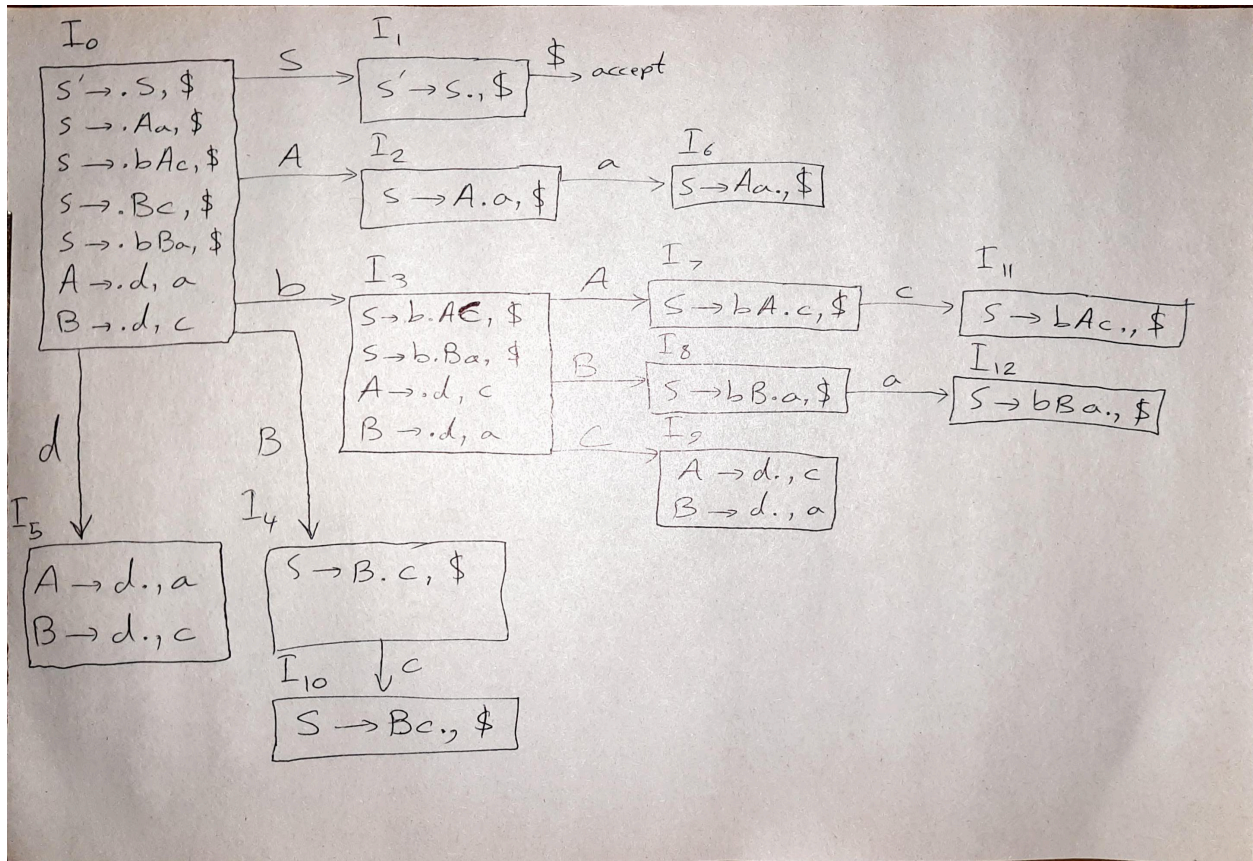 I₀
S' → .S, $
S → .Aa, $
S → .bAc, $
S → .Bc, $
S → .bBa, $
A → .d, a
B → .d, c
S
I₁
S' → S., $
$
accept
A
I₂
S → A.a, $
a
I₆
S → Aa., $
b
I₃
S → b.Ac, $
S → b.Ba, $
A → .d, c
B → .d, a
A
I₇
S → bA.c, $
c
I₁₁
S → bAc., $
B
I₈
S → bB.a, $
a
I₁₂
S → bBa., $
C
I₉
A → d., c
B → d., a
d
I₅
A → d., a
B → d., c
B
I₄
S → B.c, $
c
I₁₀
S → Bc., $